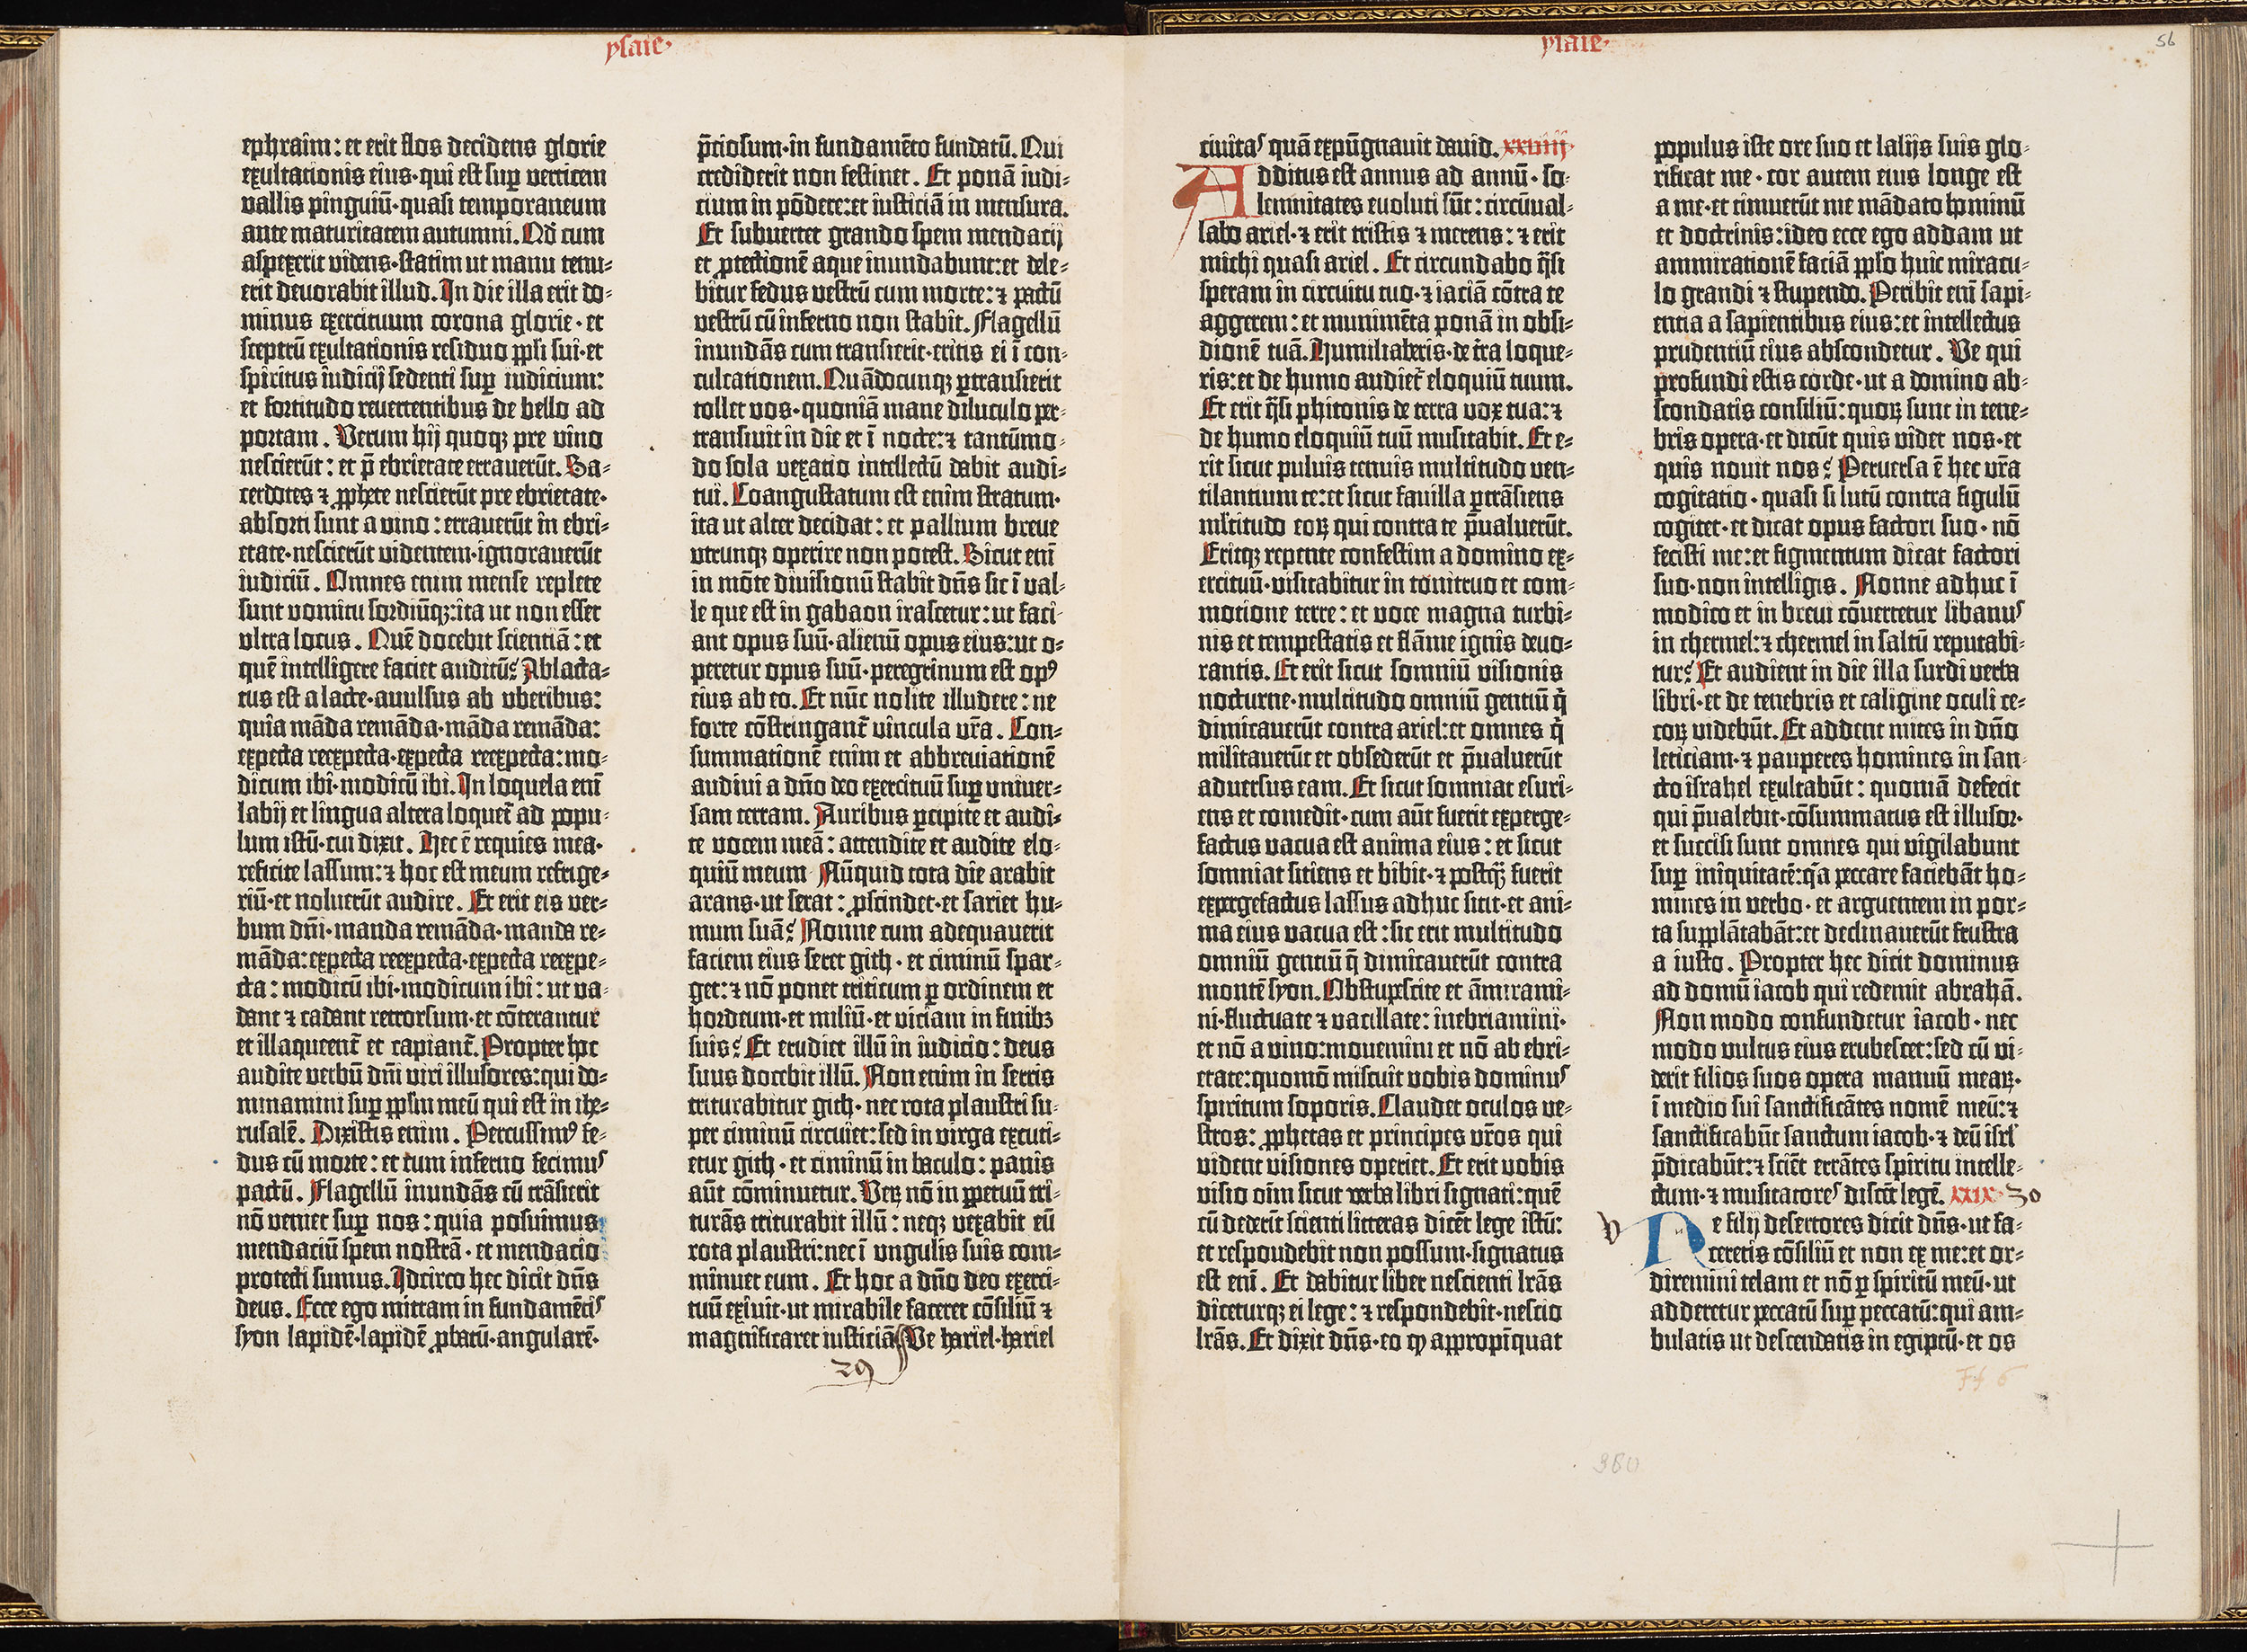 ysaie·
ephraim: et erit flos decidens glorie
exultationis eius·qui est sup verticem
vallis pinguiū·quasi temporaneum
ante maturitatem autumni. Qd̄ cum
aspexerit videns·statim ut manu tenu-
erit devorabit illud. In die illa erit do-
minus exercituum corona glorie·et
sceptrū exultationis residuo ppli sui·et
spiritus iudicij sedenti sup iudicium:
et fortitudo revertentibus de bello ad
portam. Verum hij quoqʒ pre vino
nescierūt: et p̄ ebrietate erraverūt. Sa-
cerdotes ⁊ pphete nescierūt pre ebrietate·
absorti sunt a vino: erraverūt in ebri-
etate·nescierūt videntem·ignoraverūt
iudiciū. Omnes enim mense replete
sunt vomitu sordiūqʒ:ita ut non esset
ultra locus. Quē docebit scientiā: et
quē intelligere faciet auditū? Ablacta-
tus est a lacte·auulsus ab uberibus:
quia māda remāda·māda remāda:
expecta reexpecta·expecta reexpecta:mo-
dicum ibi·modicū ibi. In loquela eni
labij et lingua altera loquet̄ ad popu-
lum istū·cui dixit. Hec ē requies mea·
reficite lassum:⁊ hoc est meum refrige-
riū·et noluerūt audire. Et erit eis ver-
bum dn̄i·manda remāda·manda re-
māda:expecta reexpecta·expecta reexpe-
cta: modicū ibi·modicum ibi: ut va-
dant ⁊ cadant retrorsum·et cōterantur
et illaqueent̄ et capiant̄. Propter hoc
audite verbū dn̄i viri illusores:qui do-
minamini sup pplm meū qui est in ihe-
rusalē. Dixistis enim. Percussimꝰ fe-
dus cū morte: et cum inferno fecimus
pactū. Flagellū inundās cū trāsierit
nō veniet sup nos: quia posuimus
mendaciū spem nostrā·et mendacio
protecti sumus. Idcirco hec dicit dn̄s
deus. Ecce ego mittam in fundamētis
syon lapidē·lapidē pbatū·angularē·
p̄ciosum·in fundamēto fundatū. Qui
crediderit non festinet. Et ponā iudi-
cium in pōdere:et iusticiā in mensura.
Et subvertet grando spem mendacij
et ptectionē aque inundabunt:et dele-
bitur fedus vestrū cum morte: ⁊ pactū
vestrū cū inferno non stabit. Flagellū
inundās cum transierit·eritis ei ī con-
culcationem. Quādocunqʒ ptransierit
tollet vos·quoniā mane diluculo per-
transivit in die et ī nocte:⁊ tantūmo-
do sola vexatio intellectū dabit audi-
tui. Coangustatum est enim stratum·
ita ut alter decidat: et pallium breve
utrunqʒ operire non potest. Sicut eni
in mōte divisionū stabit dn̄s sic ī val-
le que est in gabaon irascetur:ut faci-
ant opus suū·alienū opus eius:ut o-
peretur opus suū·peregrinum est opꝰ
eius ab eo. Et nūc nolite illudere: ne
forte cōstringant̄ vincula vr̄a. Con-
summationē enim et abbreviationē
audivi a dn̄o deo exercituū sup univer-
sam terram. Auribus pcipite et audi-
te vocem meā: attendite et audite elo-
quiū meum Nūquid tota die arabit
arans·ut serat: pscindet·et sariet hu-
mum suā? Nonne cum adequaverit
faciem eius seret gith·et ciminū spar-
get:⁊ nō ponet triticum p ordinem et
hordeum·et miliū·et viciam in finibʒ
suis? Et erudiet illū in iudicio: deus
suus docebit illū. Non enim in serris
triturabitur gith·nec rota plaustri su-
per ciminū circuiet:sed in virga excuti-
etur gith·et ciminū in baculo: panis
aūt cōminuetur. Verꝝ nō in ppetuū tri-
turās triturabit illū: neqʒ vexabit eū
rota plaustri:nec ī ungulis suis com-
minuet eum. Et hoc a dn̄o deo exerci-
tuū exivit·ut mirabile faceret cōsiliū ⁊
magnificaret iusticiā Ve hariel·hariel
29
ysaie·
56
civitas quā expūgnavit david. xxviiij·
Additus est annus ad annū·so-
lennitates evoluti sūt: circūval-
labo ariel·⁊ erit tristis ⁊ merens: ⁊ erit
michi quasi ariel. Et circundabo q̄si
speram in circuitu tuo·⁊ iaciā cōtra te
aggerem: et munimēta ponā in obsi-
dionē tuā. Humiliaberis·de tr̄a loque-
ris:et de humo audiet̄ eloquiū tuum.
Et erit q̄si phitonis de terra vox tua:⁊
de humo eloquiū tuū musitabit. Et e-
rit sicut pulvis tenuis multitudo ven-
tilantium te:et sicut favilla ptrāsiens
ml̄titudo eoꝝ qui contra te p̄valuerūt.
Eritqʒ repente confestim a domino ex-
ercituū·visitabitur in tonitruo et com-
motione terre: et voce magna turbi-
nis et tempestatis et flāme ignis devo-
rantis. Et erit sicut somniū visionis
nocturne·multitudo omniū gentiū q̄
dimicaverūt contra ariel:et omnes q̄
militaverūt et obsederūt et p̄valuerūt
adversus eam. Et sicut somniat esuri-
ens et comedit·cum aūt fuerit experge-
factus vacua est anima eius: et sicut
somniat sitiens et bibit·⁊ postq̄ fuerit
expergefactus lassus adhuc sitit·et ani-
ma eius vacua est: sic erit multitudo
omniū gentiū q̄ dimicaverūt contra
montē syon. Obstupescite et āmirami-
ni·fluctuate ⁊ vacillate: inebriamini·
et nō a vino:movemini et nō ab ebri-
etate:quomō miscuit vobis dominus
spiritum soporis. Claudet oculos ve-
stros: pphetas et principes vr̄os qui
vident visiones operiet. Et erit vobis
visio oīm sicut verba libri signati:quē
cū dederīt scienti litteras dicēt lege istū:
et respondebit non possum·signatus
est eni. Et dabitur liber nescienti lr̄as
diceturqʒ ei lege: ⁊ respondebit·nescio
lr̄as. Et dixit dn̄s·eo ꝙ appropīquat
populus iste ore suo et labijs suis glo-
rificat me·cor autem eius longe est
a me·et timuerūt me mādato hominū
et doctrinis:ideo ecce ego addam ut
ammirationē faciā pplo huic miracu-
lo grandi ⁊ stupendo. Peribit eni sapi-
entia a sapientibus eius:et intellectus
prudentiū eius abscondetur. Ve qui
profundi estis corde·ut a domino ab-
scondatis consiliū:quoꝝ sunt in tene-
bris opera·et dicūt quis videt nos·et
quis novit nos? Perversa ē hec vr̄a
cogitatio·quasi si lutū contra figulū
cogitet·et dicat opus factori suo·nō
fecisti me:et figmentum dicat factori
suo·non intelligis. Nonne adhuc ī
modico et in brevi cōvertetur libanus
in chermel:⁊ chermel in saltū reputabi-
tur? Et audient in die illa surdi verba
libri·et de tenebris et caligine oculi ce-
coꝝ videbūt. Et addent mites in dn̄o
leticiam·⁊ pauperes homines in san-
cto israhel exultabūt: quoniā defecit
qui p̄valebit·cōsummatus est illusor·
et succisi sunt omnes qui vigilabunt
sup iniquitatē:q̄a peccare faciebāt ho-
mines in verbo·et arguentem in por-
ta supplātabāt:et declinaverūt frustra
a iusto. Propter hec dicit dominus
ad domū iacob qui redemit abrahā.
Non modo confundetur iacob·nec
modo vultus eius erubescet:sed cū vi-
derit filios suos opera manuū meaꝝ·
ī medio sui sanctificātes nomē meū:⁊
sanctificabūt sanctum iacob·⁊ deū isrl̄
p̄dicabūt:⁊ sciēt errātes spiritu intelle-
ctum·⁊ musitatores discēt legē. xxix· 30
v
Ve filij desertores dicit dn̄s·ut fa-
ceretis cōsiliū et non ex me:et or-
diremini telam et nō p spiritū meū·ut
adderetur peccatū sup peccatū:qui am-
bulatis ut descendatis in egiptū·et os
360